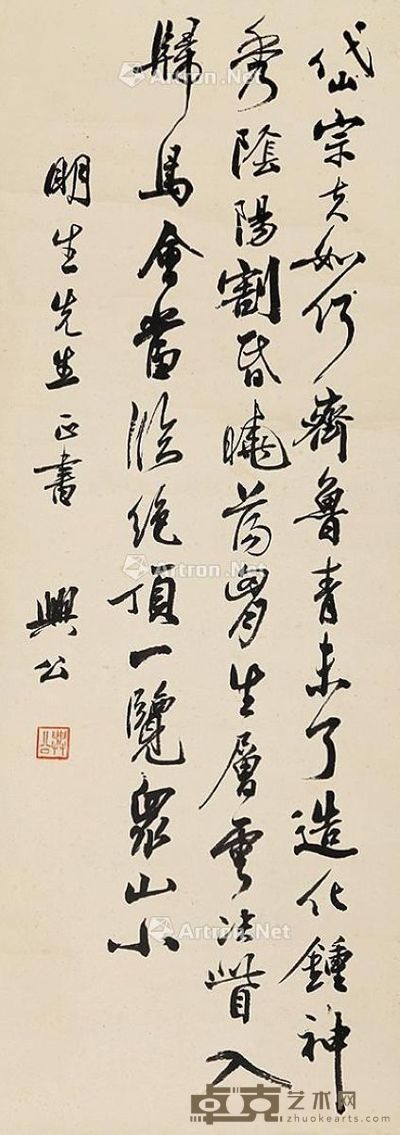 岱宗夫如何齊魯青未了造化鍾神
秀陰陽割昏曉蕩胸生層雲決眥入
歸鳥會當凌絕頂一覽眾山小
明生先生正書 興公
Artron.Net
Artron.Net
Artron.Net
Artron.Net
Artron.Net
Artron.Net
卓克艺术网
zhuokearts.com